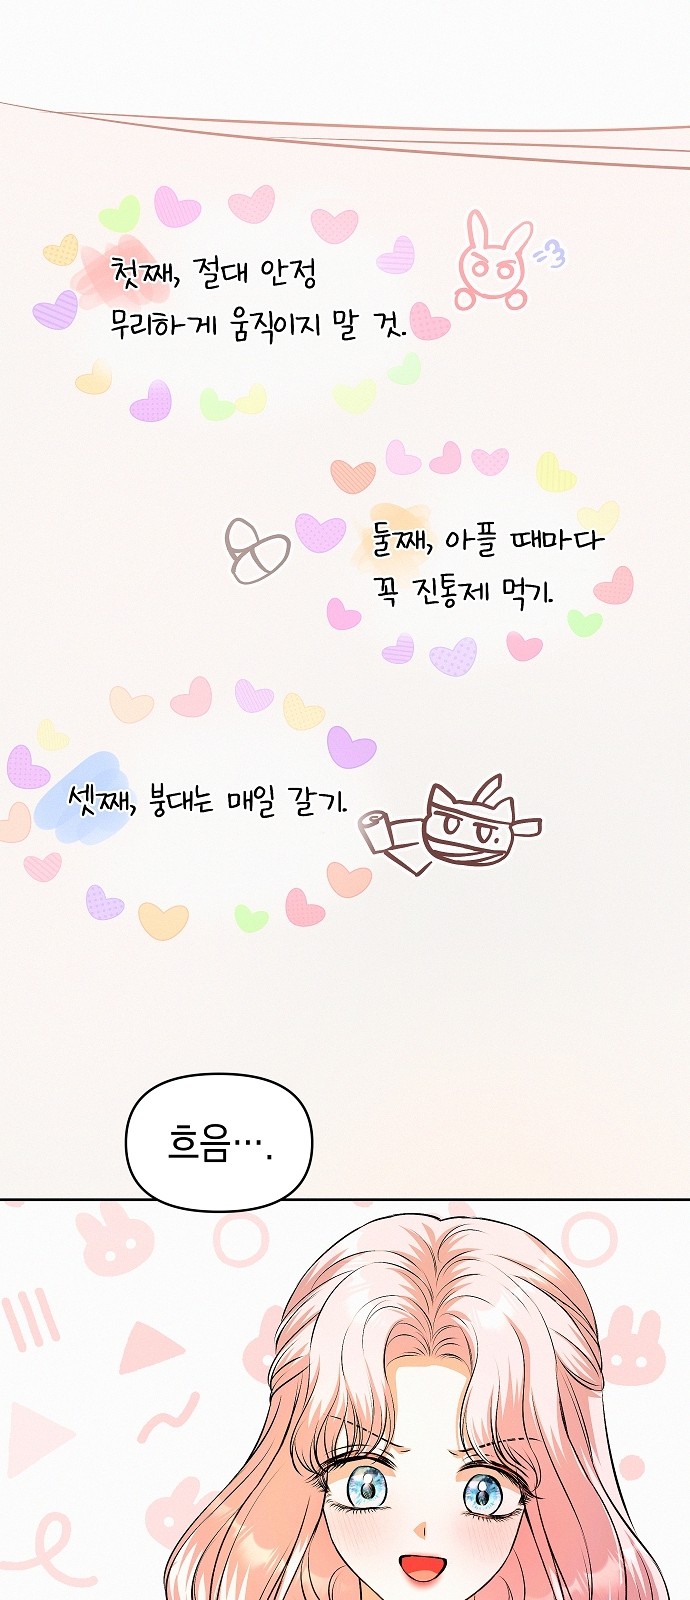 첫째, 절대 안정
무리하게 움직이지 말 것.
둘째, 아플 때마다
꼭 진통제 먹기.
셋째, 붕대는 매일 갈기.
흐음….